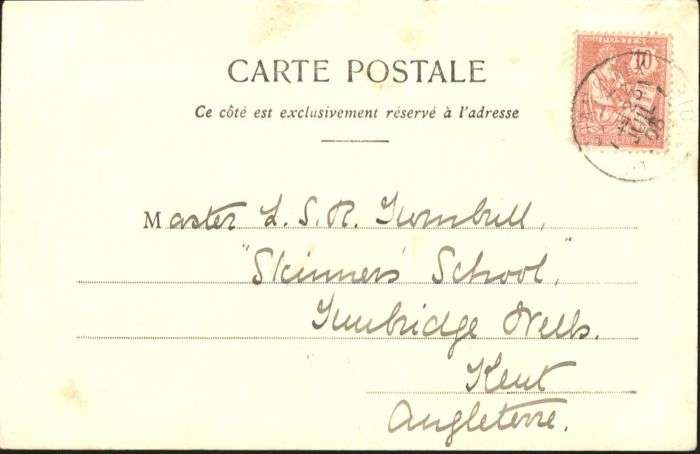 POSTES
10
CARTE POSTALE
Ce côté est exclusivement réservé à l'adresse
Master L. S. R. Turnbull,
"Skinners' School,"
Tunbridge Wells.
Kent
Angleterre.